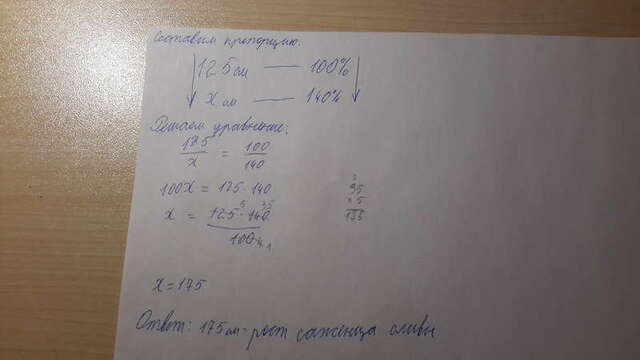 Составим пропорцию.
125 см — 100%
x см — 140%
Решаем уравнение:
125/x = 100/140
100x = 125·140
x = 125·140/100
5 35
4 1
35
× 5
175
x = 175
Ответ: 175 см - рост саженца оливы